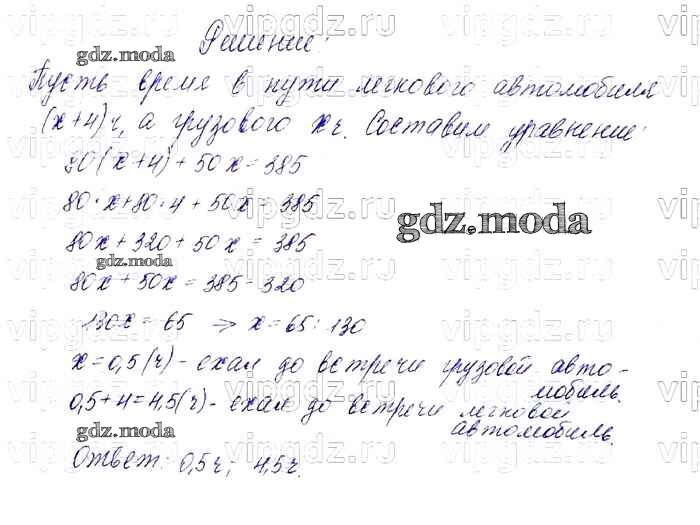 Решение:
Пусть время в пути легкового автомобиля
(x+4)ч, а грузового xч. Составим уравнение:
80(x+4)+50x=385
80·x+80·4+50x=385
80x+320+50x=385
80x+50x=385-320
130x=65 => x=65:130
x=0,5(ч)-ехал до встречи грузовой авто-
мобиль.
0,5+4=4,5(ч)-ехал до встречи легковой
автомобиль.
Ответ: 0,5ч; 4,5ч.
gdz.moda
gdz.moda
gdz.moda
gdz.moda
gdz.moda
vipgdz.ru